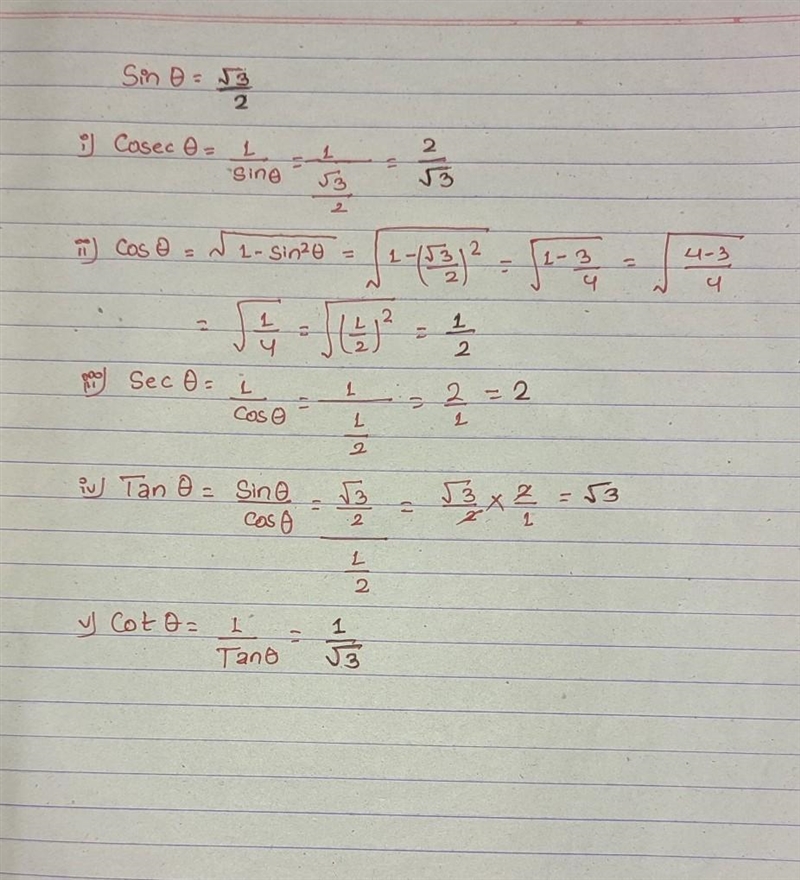 Sin θ = √3/2
i) Cosec θ = 1/sinθ = 1/(√3/2) = 2/√3
ii) Cosθ = √(1-sin²θ) = √(1-(√3/2)²) = √(1-3/4) = √((4-3)/4)
= √(1/4) = √((1/2)²) = 1/2
iii) Sec θ = 1/cosθ = 1/(1/2) = 2/1 = 2
iv) Tan θ = Sinθ/cosθ = (√3/2)/(1/2) = √3/2 × 2/1 = √3
v) Cot θ = 1/Tanθ = 1/√3